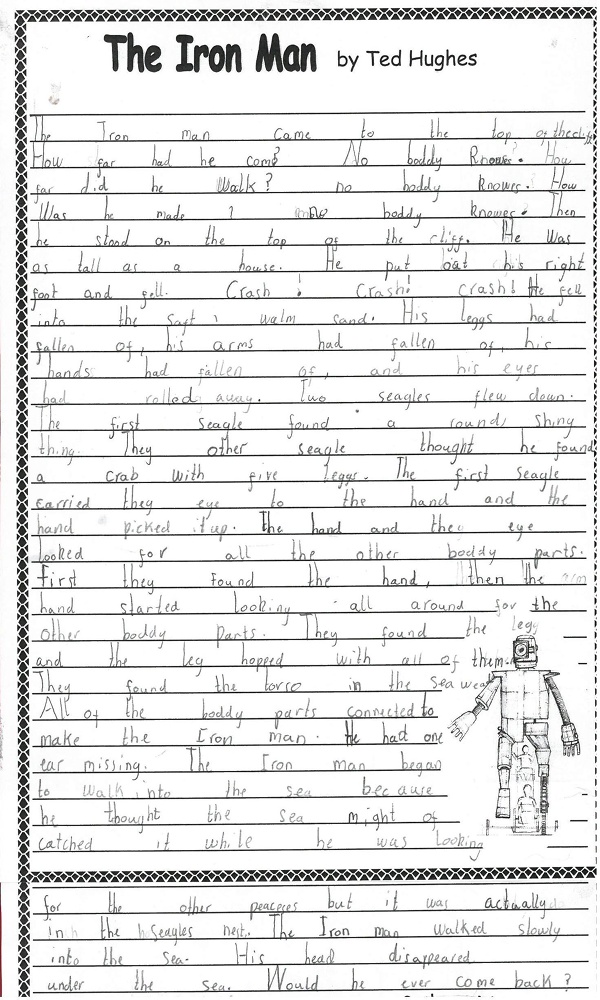 The Iron Man by Ted Hughes
The Iron man came to the top of the cliff
How far had he come? No boddy Knowes. How
far did he walk? no boddy knowes. How
Was he made ? no boddy knowes. Then
he stood on the top of the cliff. He was
as tall as a house. He put out his right
foot and fell. Crash ! Crash! crash! He fell
into the soft, walm sand. His leggs had
fallen of, his arms had fallen of, his
hands had fallen of, and his eyes
had rolled away. Two seagles flew down.
The first seagle found a round, shiny
thing. They other seagle thought he found
a crab with five leggs. The first seagle
carried they eye to the hand and the
hand picked it up. The hand and the eye
looked for all the other boddy parts.
first they found the hand, then the arm
hand started looking all around for the
other boddy parts. They found the legg
and the leg hopped with all of them.
They found the torso in the sea weat
All of the boddy parts connected to
make the Iron man. He had one
ear missing. The Iron man began
to walk into the sea because
he thought the sea might of
catched it while he was looking
for the other peaceces but it was actually
in the seagles nest. The Iron man walked slowly
into the sea. His head disappeared
under the sea. Would he ever come back ?